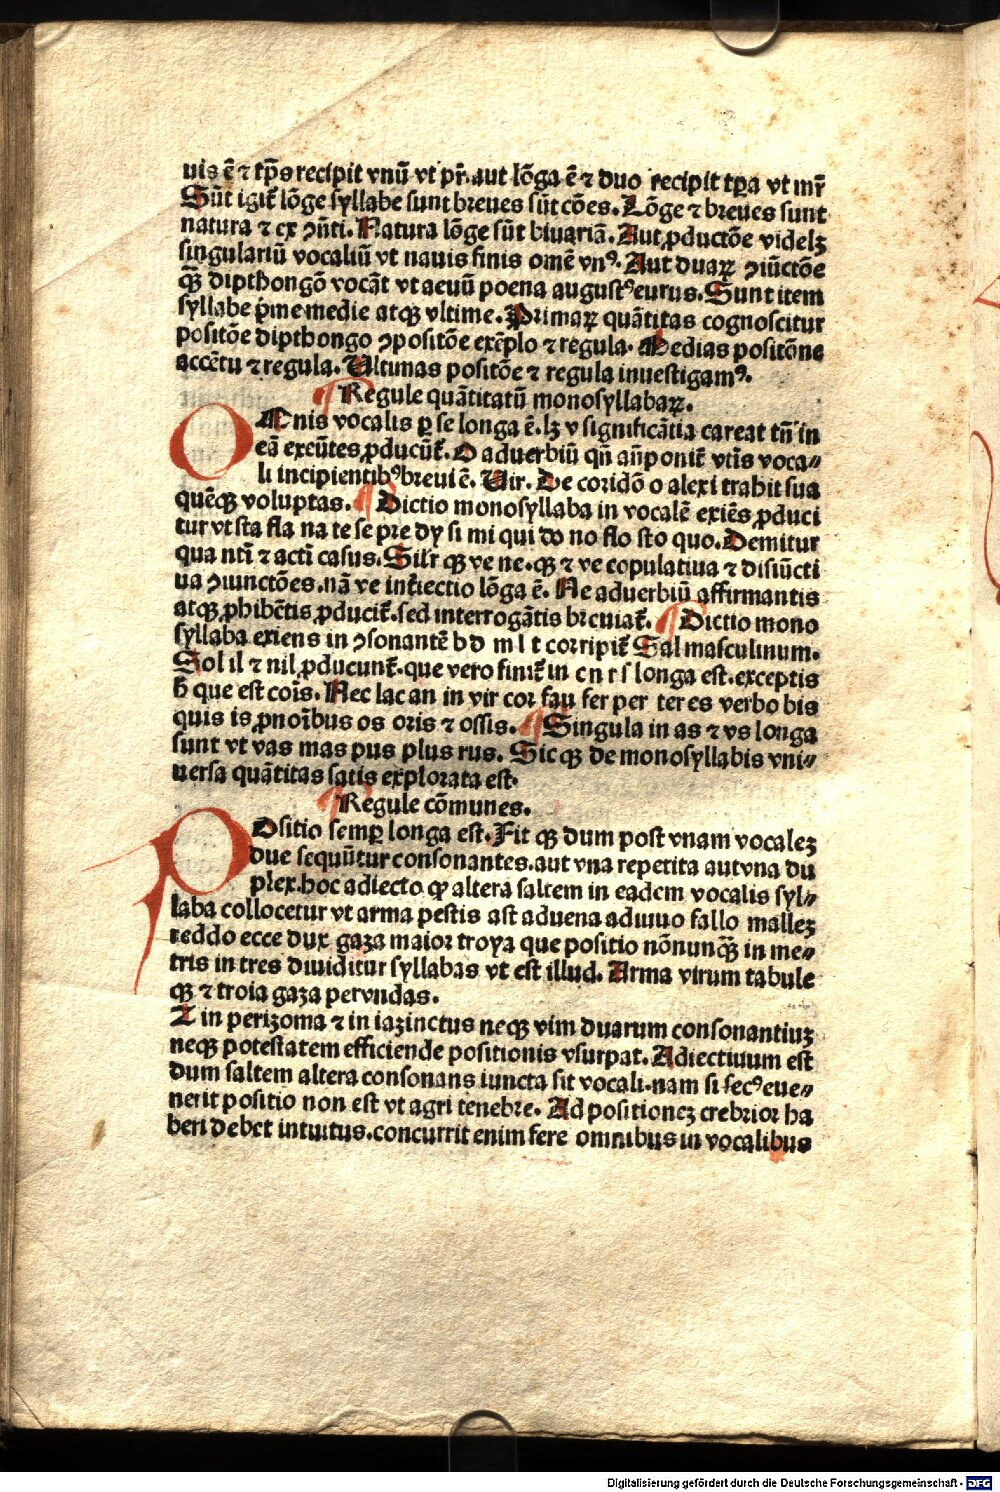 uis ē ⁊ tp̄s recipit vnū vt pr̄. aut lōga ē ⁊ duo recipit tꝑa vt mr̄
Sūt igit̄ lōge syllabe sunt breues sūt cōes. Lōge ⁊ breues sunt
natura ⁊ ex ꝯn̄ti. Natura lōge sūt biuariā. Aut ꝓductōe videlꝫ
singulariū vocaliū vt nauis finis omē vnꝰ. Aut duaꝝ ꝯiūctōe
qꝫ̄ dipthongō vocāt vt aeuū poena augustꝰ eurus. Sunt item
syllabe p̄me medie atqꝫ vltime. Primaꝝ quātitas cognoscitur
positōe dipthongo ꝯpositōe exēplo ⁊ regula. Medias positōne
accētu ⁊ regula. Ultimas positōe ⁊ regula inuestigamꝰ.
¶ Regule quātitatū monosyllabaꝝ.
OMnis vocalis ꝑ se longa ē. lꝫ v significātia careat tn̄ in
eā exeūtes ꝓducūt̄. O aduerbiū qn̄ an̄ponit̄ vtīs voca⸗
li incipientibꝰ breui ē. Uir. De coridō o alexi trahit sua
quēqꝫ voluptas. ¶ Dictio monosyllaba in vocalē exiēs ꝓduci
tur vt sta fla na te se pre dy si mi qui do no flo sto quo. Demitur
qua ntī ⁊ acti casus. Sil'r qꝫ ve ne. qꝫ ⁊ ve copulatiua ⁊ disiūcti
ua ꝯiunctōes. nā ve int̄iectio lōga ē. Ne aduerbiū affirmantis
atqꝫ ꝓhibētis ꝓducit̄. sed interrogātis breuiat̄. ¶ Dictio mono
syllaba exiens in ꝯsonantē b d m l t corripit̄ Sal masculinum.
Sol il ⁊ nil ꝓducunt̄. que vero finit̄ in c n r s longa est. exceptis
h̄ que est cois. Nec lac an in vir cor fau fer per ter es verbo bis
quis is ꝓnoībus os oris ⁊ ossis. ¶ Singula in as ⁊ vs longa
sunt vt vas mas pus plus rus. Sicqꝫ de monosyllabis vni⸗
uersa quātitas satis explorata est.
¶ Regule cōmunes.
POsitio semꝑ longa est. Fit qꝫ dum post vnam vocaleꝫ
due sequūtur consonantes. aut vna repetita aut vna du
plex. hoc adiecto ꝙ altera saltem in eadem vocalis syl⸗
laba collocetur vt arma pestis ast aduena adiuuo fallo malleꝫ
reddo ecce dux gaza maior troya que positio nōnunqꝫ̄ in me⸗
tris in tres diuiditur syllabas vt est illud. Arma virum tabule
qꝫ ⁊ troia gaza per vndas.
Z in perizoma ⁊ in iazinctus neqꝫ vim duarum consonantiuꝫ
neqꝫ potestatem efficiende positionis vsurpat. Adiectiuum est
dum saltem altera consonans iuncta sit vocali. nam si secꝰ eue⸗
nerit positio non est vt agri tenebre. Ad positioneꝫ crebrior ha
beri debet intuitus. concurrit enim fere omnibus in vocalibus
Digitalisierung gefördert durch die Deutsche Forschungsgemeinschaft - DFG